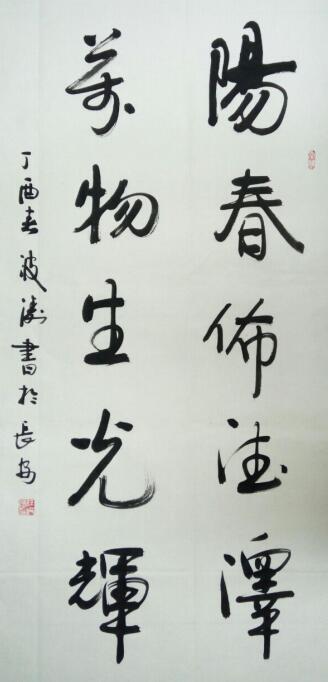 陽春佈德澤
萬物生光輝
丁酉春波濤書於長安